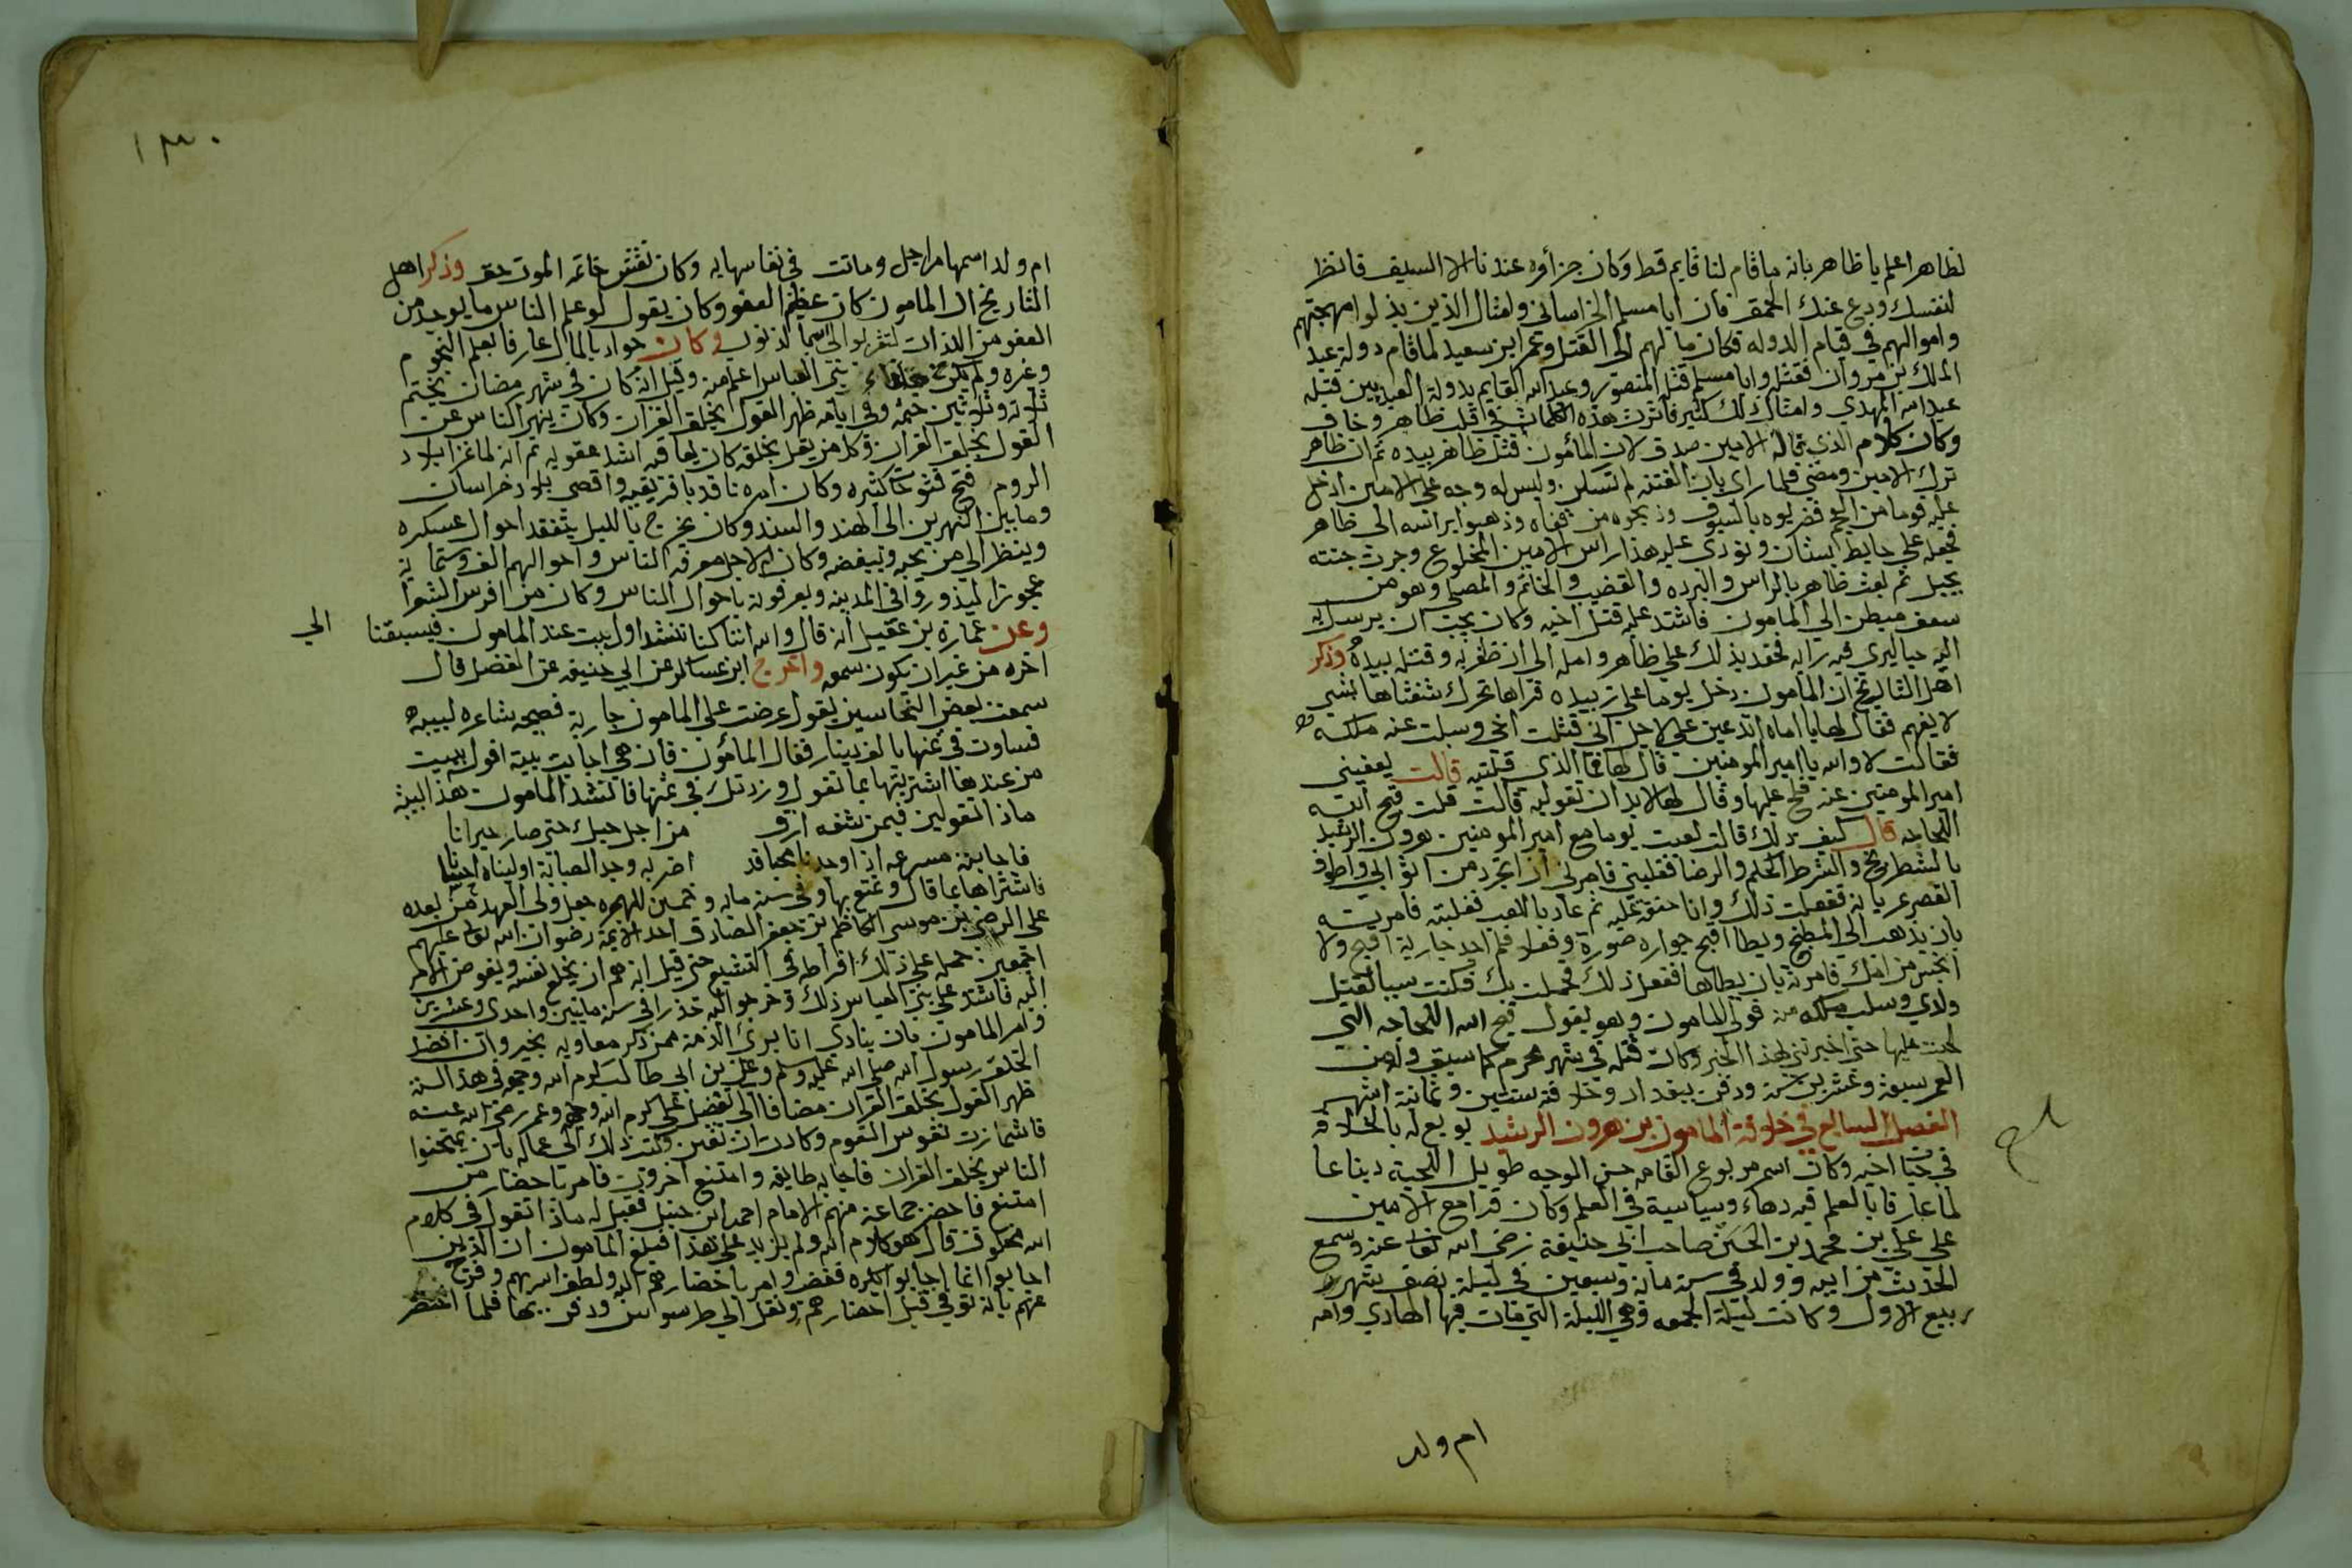 لطاهر اعلم يا طاهر بانه ماقام لنا قايم قط وكان جزاؤه عندنا الا السيف فانظر
لنفسك ودع عنك الحمق فان ابا مسلم الخراساني وامثال الذين بذلوا مهجتهم
واموالهم في قيام الدوله فكان مالهم الى القتل وعمر ابن سعيد لماقام دولة عبد
الملك بن مروان فقتله وابا مسلم قتله المنصور وعبد الله القايم بدولة العبديين قتله
عبيد الله المهدي وامثال ذلك كثير فاثرت هذه الكلمات في قلب طاهر وخاف
وكان كلام الذي قاله الامين صدق لان المأمون قتل طاهر بيده ثم ان طاهر
ترك الامين ومضى فلما راى بان الفتنه لم تسكن وليس له وجه على الامين ادخل
عليه قوما من العجم فضربوه بالسيوف وذبحوه من قفاه وذهبوا براسه الى طاهر
فجعله على حايط بستان ونودى عليه هذا راس الامين المخلوع وجرت جنته
بحبل ثم بعث طاهر بالراس والبرده والقضيب والخاتم والمصلى وهو من
سعف مبطن الي المامون فاشتد عليه قتل اخيه وكان يحب ان يرسل به
اليه حيا ليرى فيه رايه فحقد بذلك على طاهر وامله الى ان ظفر به وقتله بيده وذكر
اهل التاريخ ان المأمون دخل يوما على زبيده فراها تحرك شفتاها بشي
لا يفهم فقال لها يا اماه اتدعين علي لاجل اني قتلت اخي وسبلت عنه ملكه
فقالت لا والله يا امير المومنين قال لها فما الذي قلتيه قالت يعفيني
امير المومنين عنه فلح عليها وقال لها لابد ان تقوليه قالت قلت قبح الله
اللجاجه قال كيف ذلك قالت لعبت يوما مع امير المومنين هرون الرشيد
بالشطرنج والشرط الحكم والرضا فغلبني فامرني ان اتجرد من اثوابي واطوف
القصر عريانة ففعلت ذلك وانا حنقة عليه ثم عاد باللعب فغلبته فامرته
بان يذهب الي المطبخ ويطا اقبح جواره صورة وفعلا فلم اجد جارية اقبح ولا
انجس من امك فامرته بان يطاها ففعل ذلك فحملت بك فكنت سببا لقتل
ولدي وسلب ملكه من فولى المامون وهو يقول قبح الله اللجاجه التي
لحت عليها حتى اخبرتني بهذا الخبر وكان قتله في شهر محرم كما سبق وله من
العمر سبعة وعشرين سنة ودفن ببغداد وخلافته سنتين وثمانية اشهر
الفصل السابع في خلافة المامون بن هرون الرشيد بويع له بالخلافة
في حياة اخيه وكان اسمر مربوع القامه حسن الوجه طويل اللحية دينا عا
لما عارفا بالعلم فيه دهاء وسياسية في العلم وكان قرا مع الامين
علي علي بن محمد بن الحسن صاحب ابي حنيفة رضي الله تعالى عنه وسمع
الحديث من ابيه وولد في سنة ماية وسبعين في ليلة نصف شهر
ربيع الاول وكانت ليلة الجمعه وهي الليلة التي مات فيها الهادي وامه
ام ولد
١٣٠
ام ولد اسمها مراجل وماتت في نفاسها به وكان نقش خاتمه الموت حق وذكر اهل
التاريخ ان المامون كان عظيم العفو وكان يقول لو علم الناس ما يوجد من
العفو من اللذات لتقربوا الي بالذنوب وكان جوادا بالمال عارفا بعلم النجوم
وغره ولم يكن خلفاء بني العباس اعلم منه وقيل انه كان في شهر رمضان يختم
ثلاثة وثلاثين ختمه وفي ايامه ظهر القول بخلق القران وكان ينهر الناس عن
القول بخلق القران وكل من يقل بخلقه كان يعاقبه اشد عقوبه ثم انه لما غزا بلاد
الروم فتح فتوحات كثيره وكان امره نافذ بافريقيه واقصى بلاد خراسان
وما بين النهرين الى الهند والسند وكان يخرج بالليل يتفقد احوال عسكره
وينظر الي من يحبه ويبغضه وكان لاجل معرفة الناس واحوالهم الف وستماية
عجوزا ليذوروا في المدينه ويعرفونه باحوال الناس وكان من افرس الشعرا
وعن عمارة بن عقيل انه قال والله اننا كنا ننشد اول بيت عند المامون فيسبقنا الي
اخره من غير ان يكون سمعه واخرج ابن عساكر عن ابي حنيفه عن الفضل قال
سمعت بعض النخاسين يقول عرضت على المامون جارية فصيحه شاعره لبيبه
فساوت في ثمنها بالف دينار فقال المأمون فان هي اجابت بيت اقول ببيت
من عندها اشتريتها بما تقول وزدتك في ثمنها فانشد المأمون هذا البيت
ماذا تقولين فيمن شفه ارق من اجل حبك حتى صار حيرانا
فاجابته مسرعه اذا وجدنا محبا قد اضر به وجد الصبابة اوليناه احسانا
فاشتراها بما قال وتمتع بها وفي سنة مايه وخمسين للهجره جعل ولى العهد من بعده
على الرضى بن موسى الكاظم بن جعفر الصادق احد الايمة رضوان الله تعالى عليهم
اجمعين حمله على ذلك افراطه في التشيع حتى قيل انه هم ان يخلع نفسه ويفوض الامر
اليه فاشتد على بني العباس ذلك وخرجوا اليه في سنة مايتين واحدى وعشرين
وامر المامون بان ينادي انا بري الذمة ممن ذكر معاويه بخير وان افضل
الخلق رسول الله صلى الله عليه وسلم وعلي بن ابي طالب كرم الله وجهه وفي هذا السنه
ظهر القول بخلق القران مضافا الى تفضيل علي كرم الله وجهه وعمر رضي الله عنه
فاشمازت نفوس القوم وكادت ان تفتن وكتب ذلك الى عماله بان يمتحنوا
الناس بخلق القران فاجابه طايفه وامتنع اخرون فامر باحضار من
امتنع فاحضر جماعة منهم الامام احمد ابن حنبل فقيل له ماذا تقول في كلام
الله مخلوق قال هو كلام الله ولم يزيد على هذا فبلغ المامون ان الذين
اجابوا انما اجابوا بكره فغضب وامر باحضارهم اليه ولطف الله بهم وفرج
عنهم بانه توفي قبل احضارهم ونقل الي طرسوس ودفن بها فلما احتضر